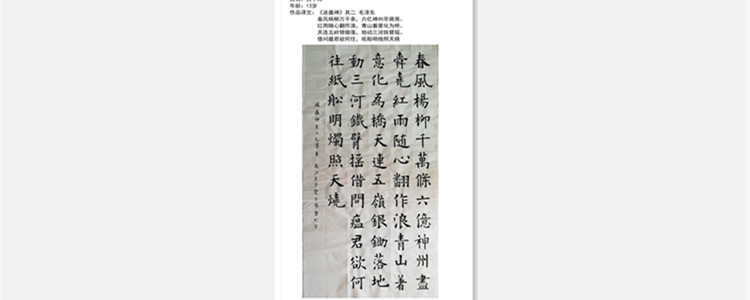 年龄：13岁
作品译文：《送瘟神》其二 毛泽东
春风杨柳万千条，六亿神州尽舜尧。
红雨随心翻作浪，青山着意化为桥。
天连五岭银锄落，地动三河铁臂摇。
借问瘟君欲何往，纸船明烛照天烧
春風楊柳千萬條六億神州盡
舜堯紅雨随心翻作浪青山著
意化為橋天連五嶺銀鋤落地
動三河鐵臂摇借問瘟君欲何
往紙舩明燭照天燒